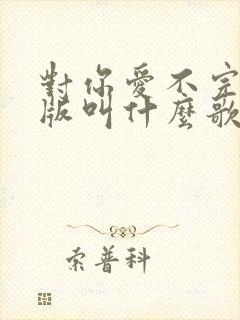 對你愛不完
版叫什麼歌
索普科